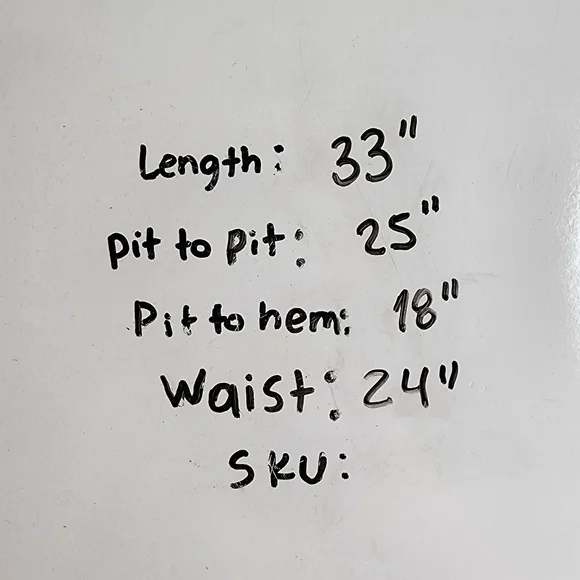 Length: 33"
pit to pit: 25"
Pit to hem: 18"
Waist: 24"
SKU: